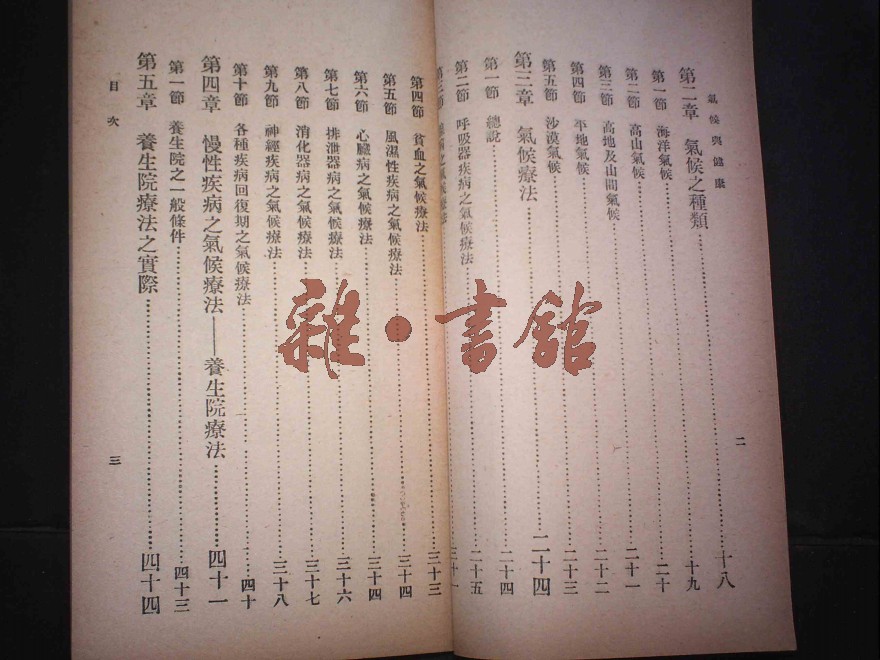 氣候與健康
二
第二章 氣候之種類……十八
第一節 海洋氣候……十九
第二節 高山氣候……二十
第三節 高地及山間氣候……二十一
第四節 平地氣候……二十二
第五節 沙漠氣候……二十三
第三章 氣候療法……二十四
第一節 總說……二十四
第二節 呼吸器疾病之氣候療法……二十五
第三節 病之氣候療法……三十一
第四節 貧血之氣候療法……三十三
第五節 風濕性疾病之氣候療法……三十四
第六節 心臟病之氣候療法……三十四
第七節 排泄器病之氣候療法……三十六
第八節 消化器病之氣候療法……三十七
第九節 神經疾病之氣候療法……三十八
第十節 各種疾病回復期之氣候療法……四十
第四章 慢性疾病之氣候療法——養生院療法……四十一
第一節 養生院之一般條件……四十三
第五章 養生院療法之實際……四十四
目次
三
雜·書館